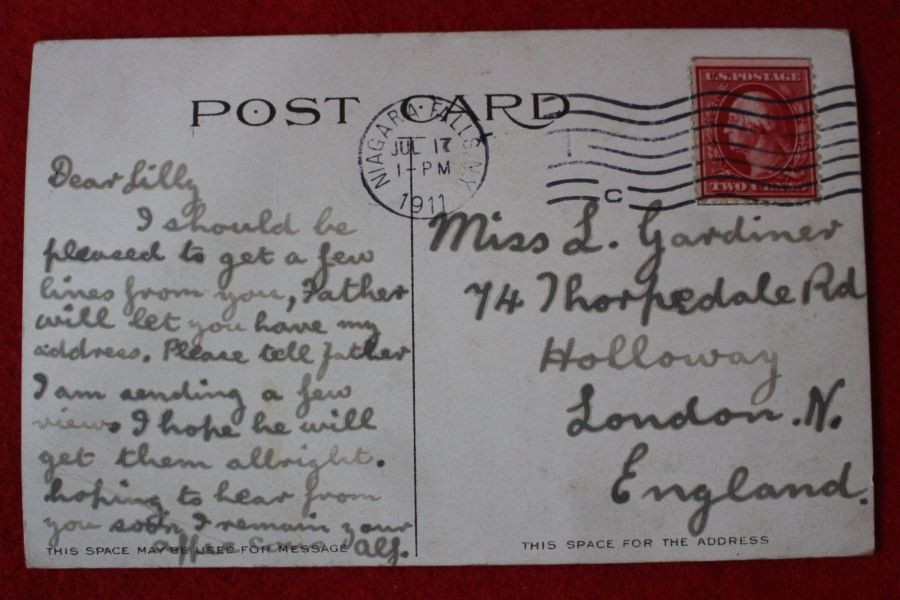 POST CARD
NIAGARA FALLS, N.Y.
JUL 17
1-PM
1911
C
U.S. POSTAGE
TWO CENTS
Dear Lilly
I should be
pleased to get a few
lines from you, Father
will let you have my
address. Please tell father
I am sending a few
views I hope he will
get them allright.
hoping to hear from
you soon I remain your
Alf.
THIS SPACE MAY BE USED FOR MESSAGE
Miss L. Gardiner
74 Thorpedale Rd
Holloway
London. N.
England.
THIS SPACE FOR THE ADDRESS